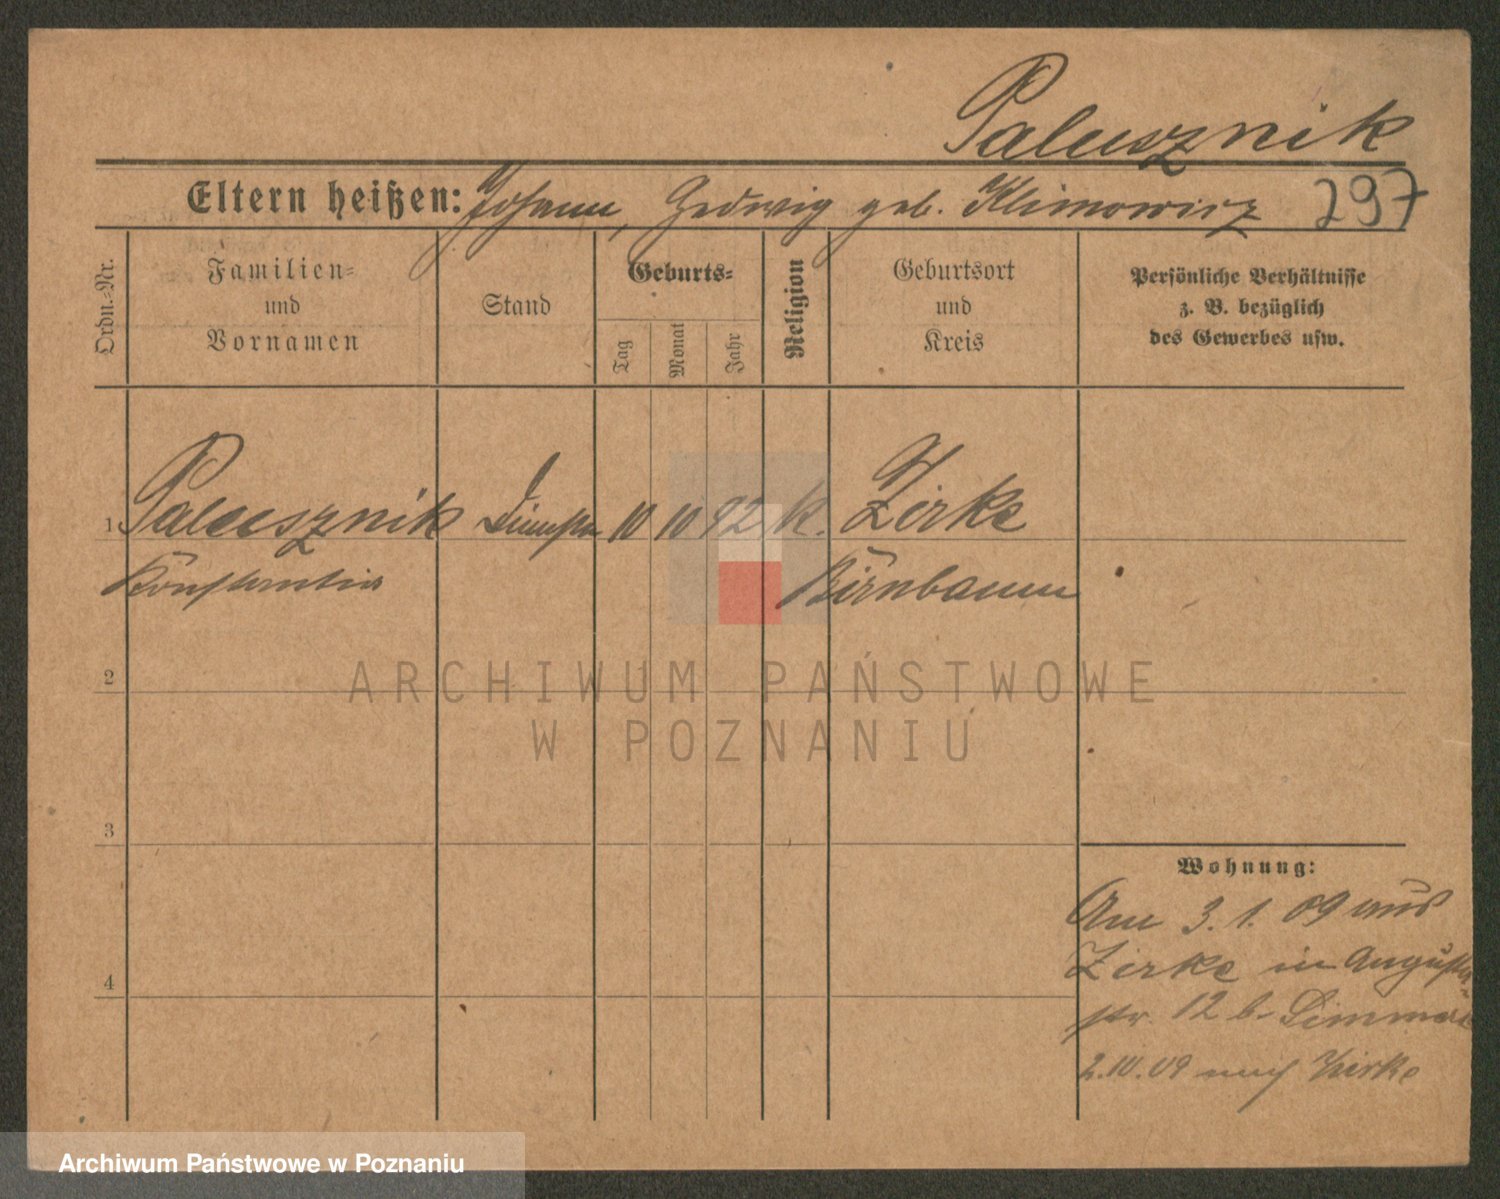 Palusznik
Eltern heißen: Johann, Hedwig geb. Klimowicz 297
Ordn.-Nr.
Familien-
und
Vornamen
Stand
Geburts-
Tag
Monat
Jahr
Religion
Geburtsort
und
Kreis
Persönliche Verhältnisse
z. B. bezüglich
des Gewerbes usw.
1 Palusznik 10 10 92 K. Zirke
Konstantia Birnbaum
2
3
4
Wohnung:
Am 3. 1. 09 aus
Zirke in Augusta-
str. 12 b.
2.10.09 nach Zirke
ARCHIWUM PAŃSTWOWE
W POZNANIU
Archiwum Państwowe w Poznaniu